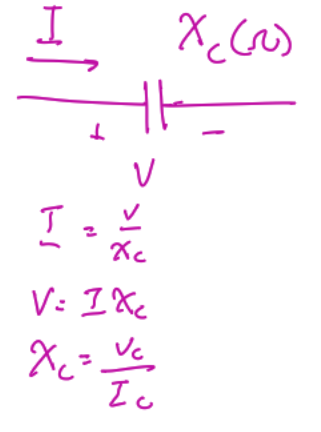 I X_c(Ω)
+ -
V
I = V/X_c
V = I X_c
X_c = V_c/I_c